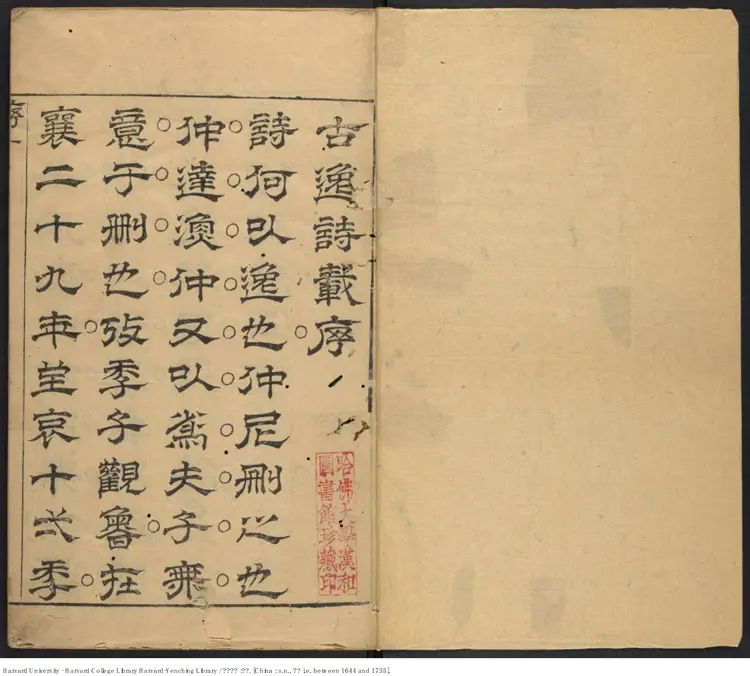 古逸詩載序
詩何㠯逸也仲尼刪之也
仲達漁仲又㠯為夫子無
意于刪也攷季子觀魯在
襄二十九年至哀十弌秊
序一
哈佛大學漢和
圖書館珍藏印
Harvard University - Harvard College Library Harvard-Yenching Library / ???? :??. [China : s.n., ?? i.e. between 1644 and 1735].